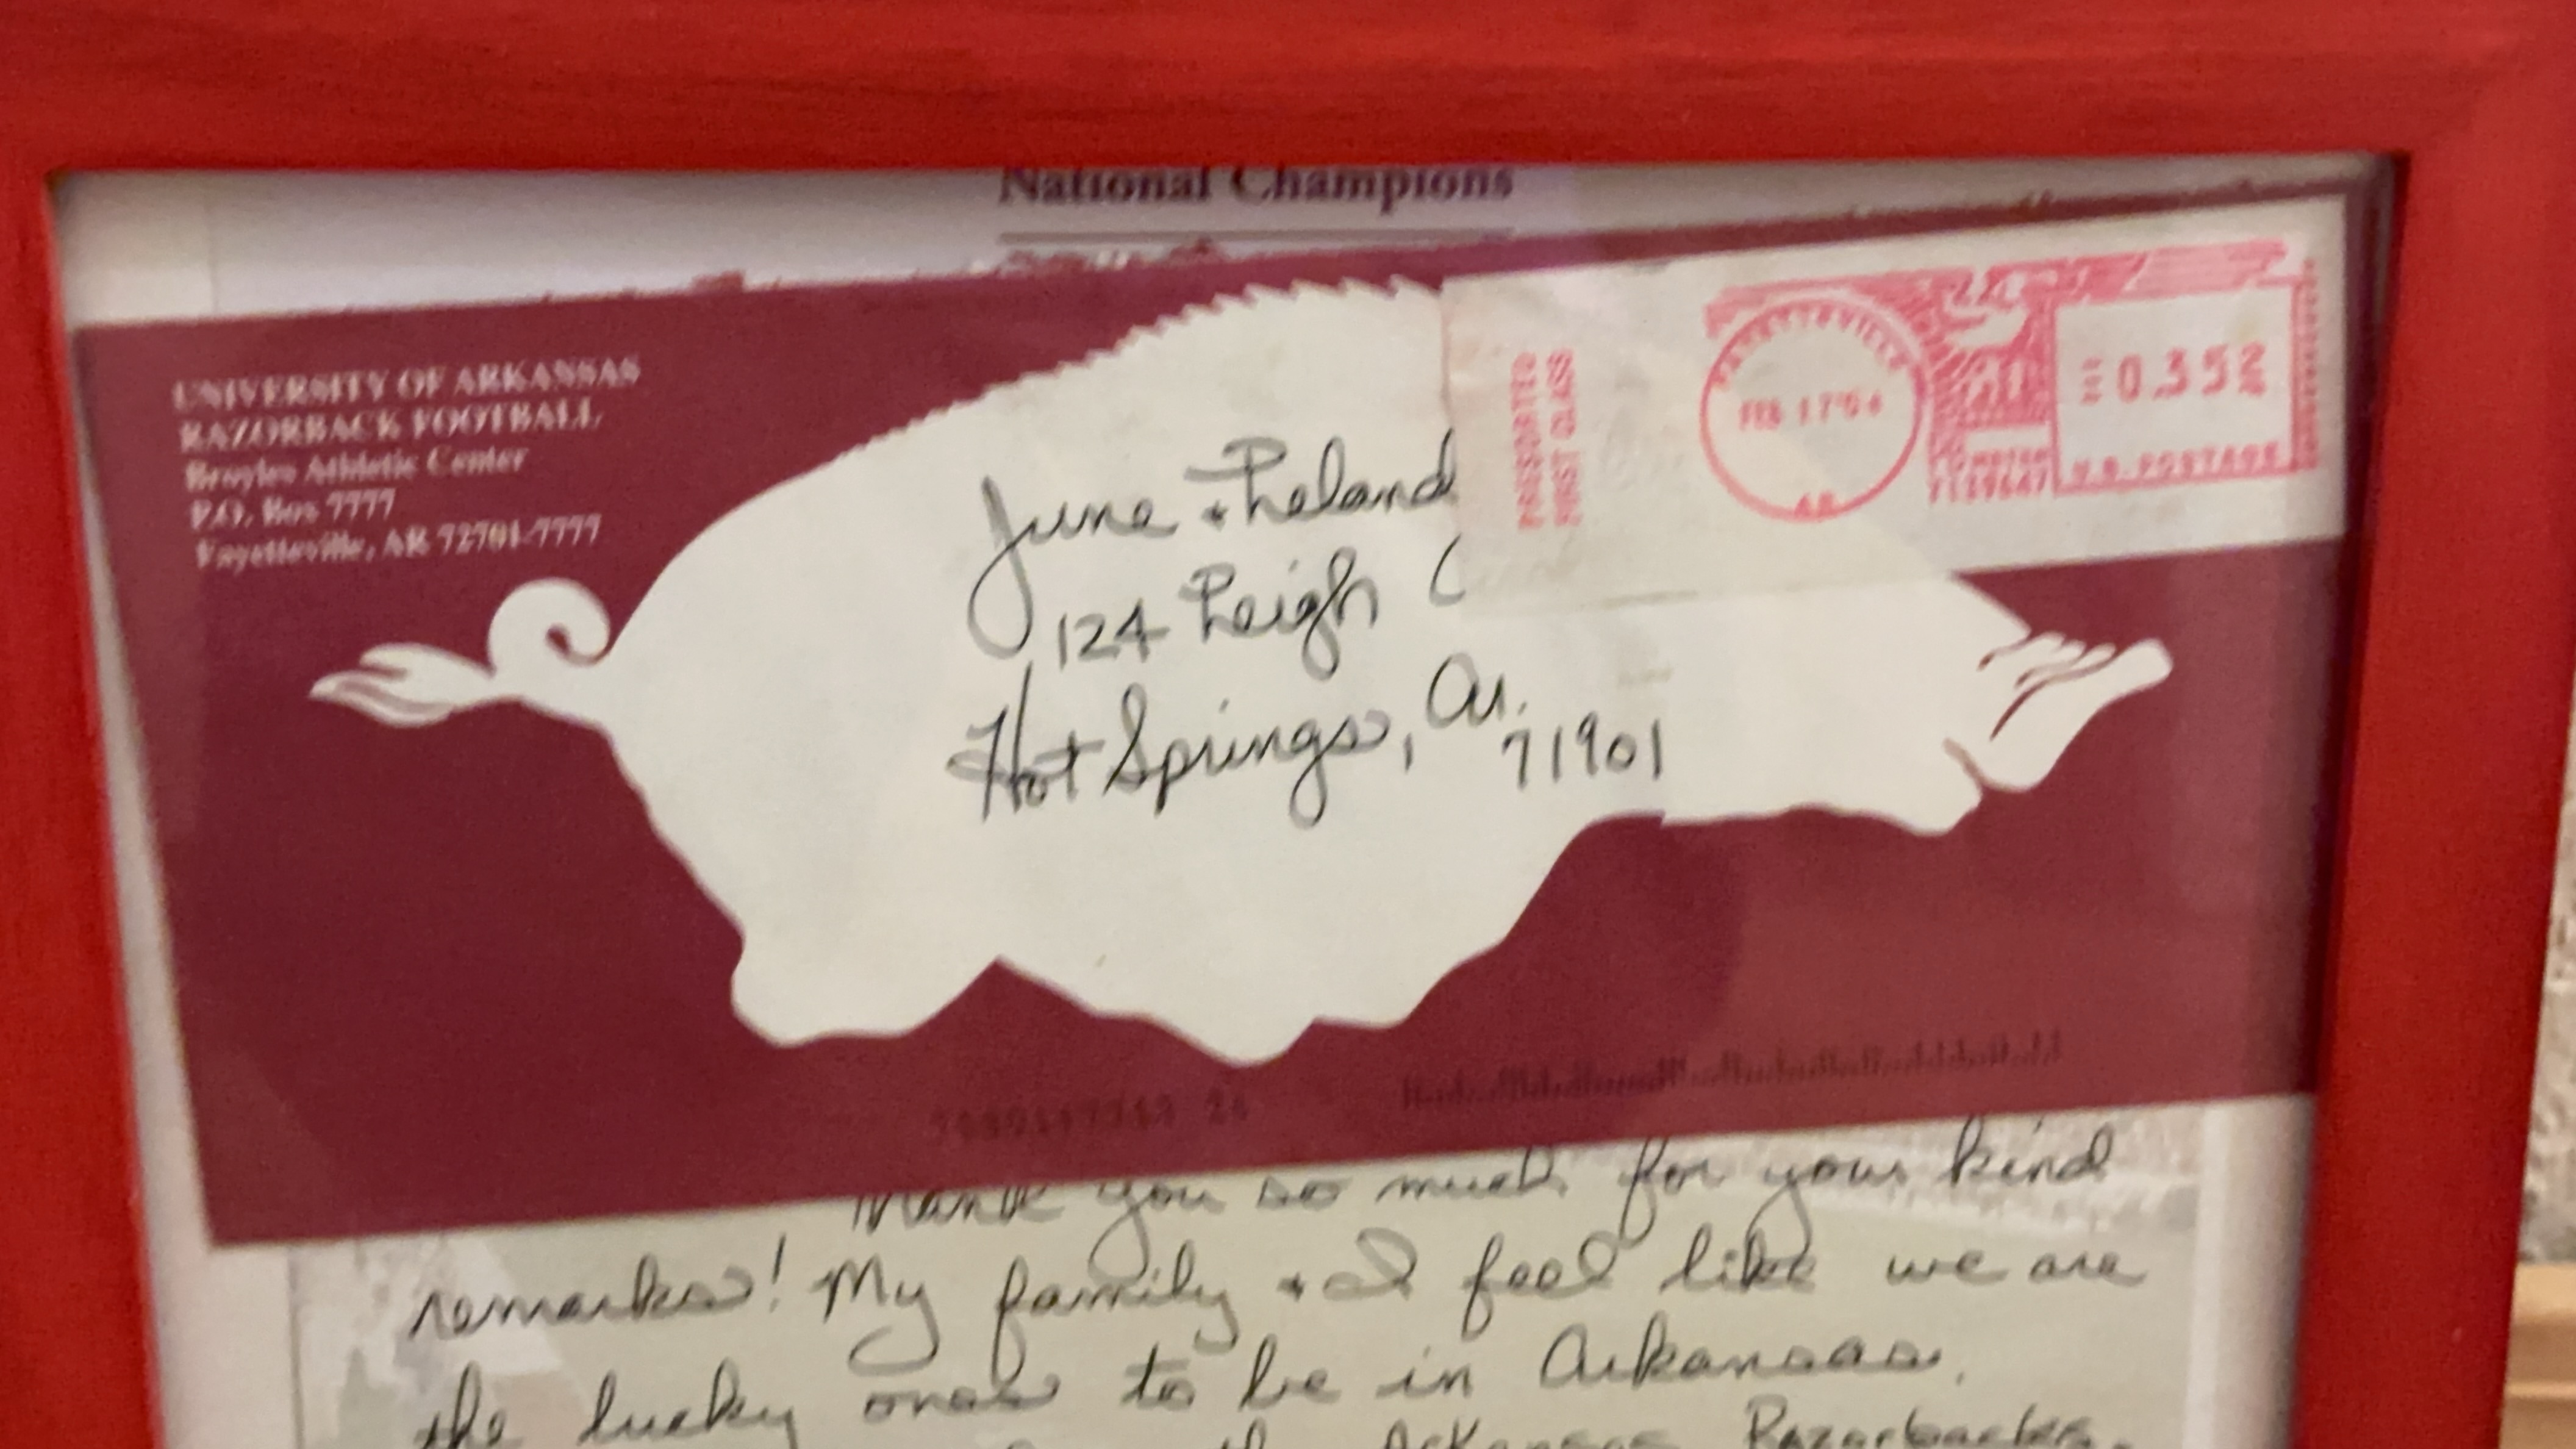 National Champions
UNIVERSITY OF ARKANSAS
RAZORBACK FOOTBALL
Broyles Athletic Center
P.O. Box 7777
Fayetteville, AR 72701-7777
PRESORTED
FIRST CLASS
FAYETTEVILLE
FEB 17'04
AR
0.352
U.S. POSTAGE
June + Leland
124 Leigh C
Hot Springs, Ar.
71901
Thank you so much for your kind
remarks! My family + I feel like we are
the lucky ones to be in Arkansas.
the Arkansas Razorbacks.